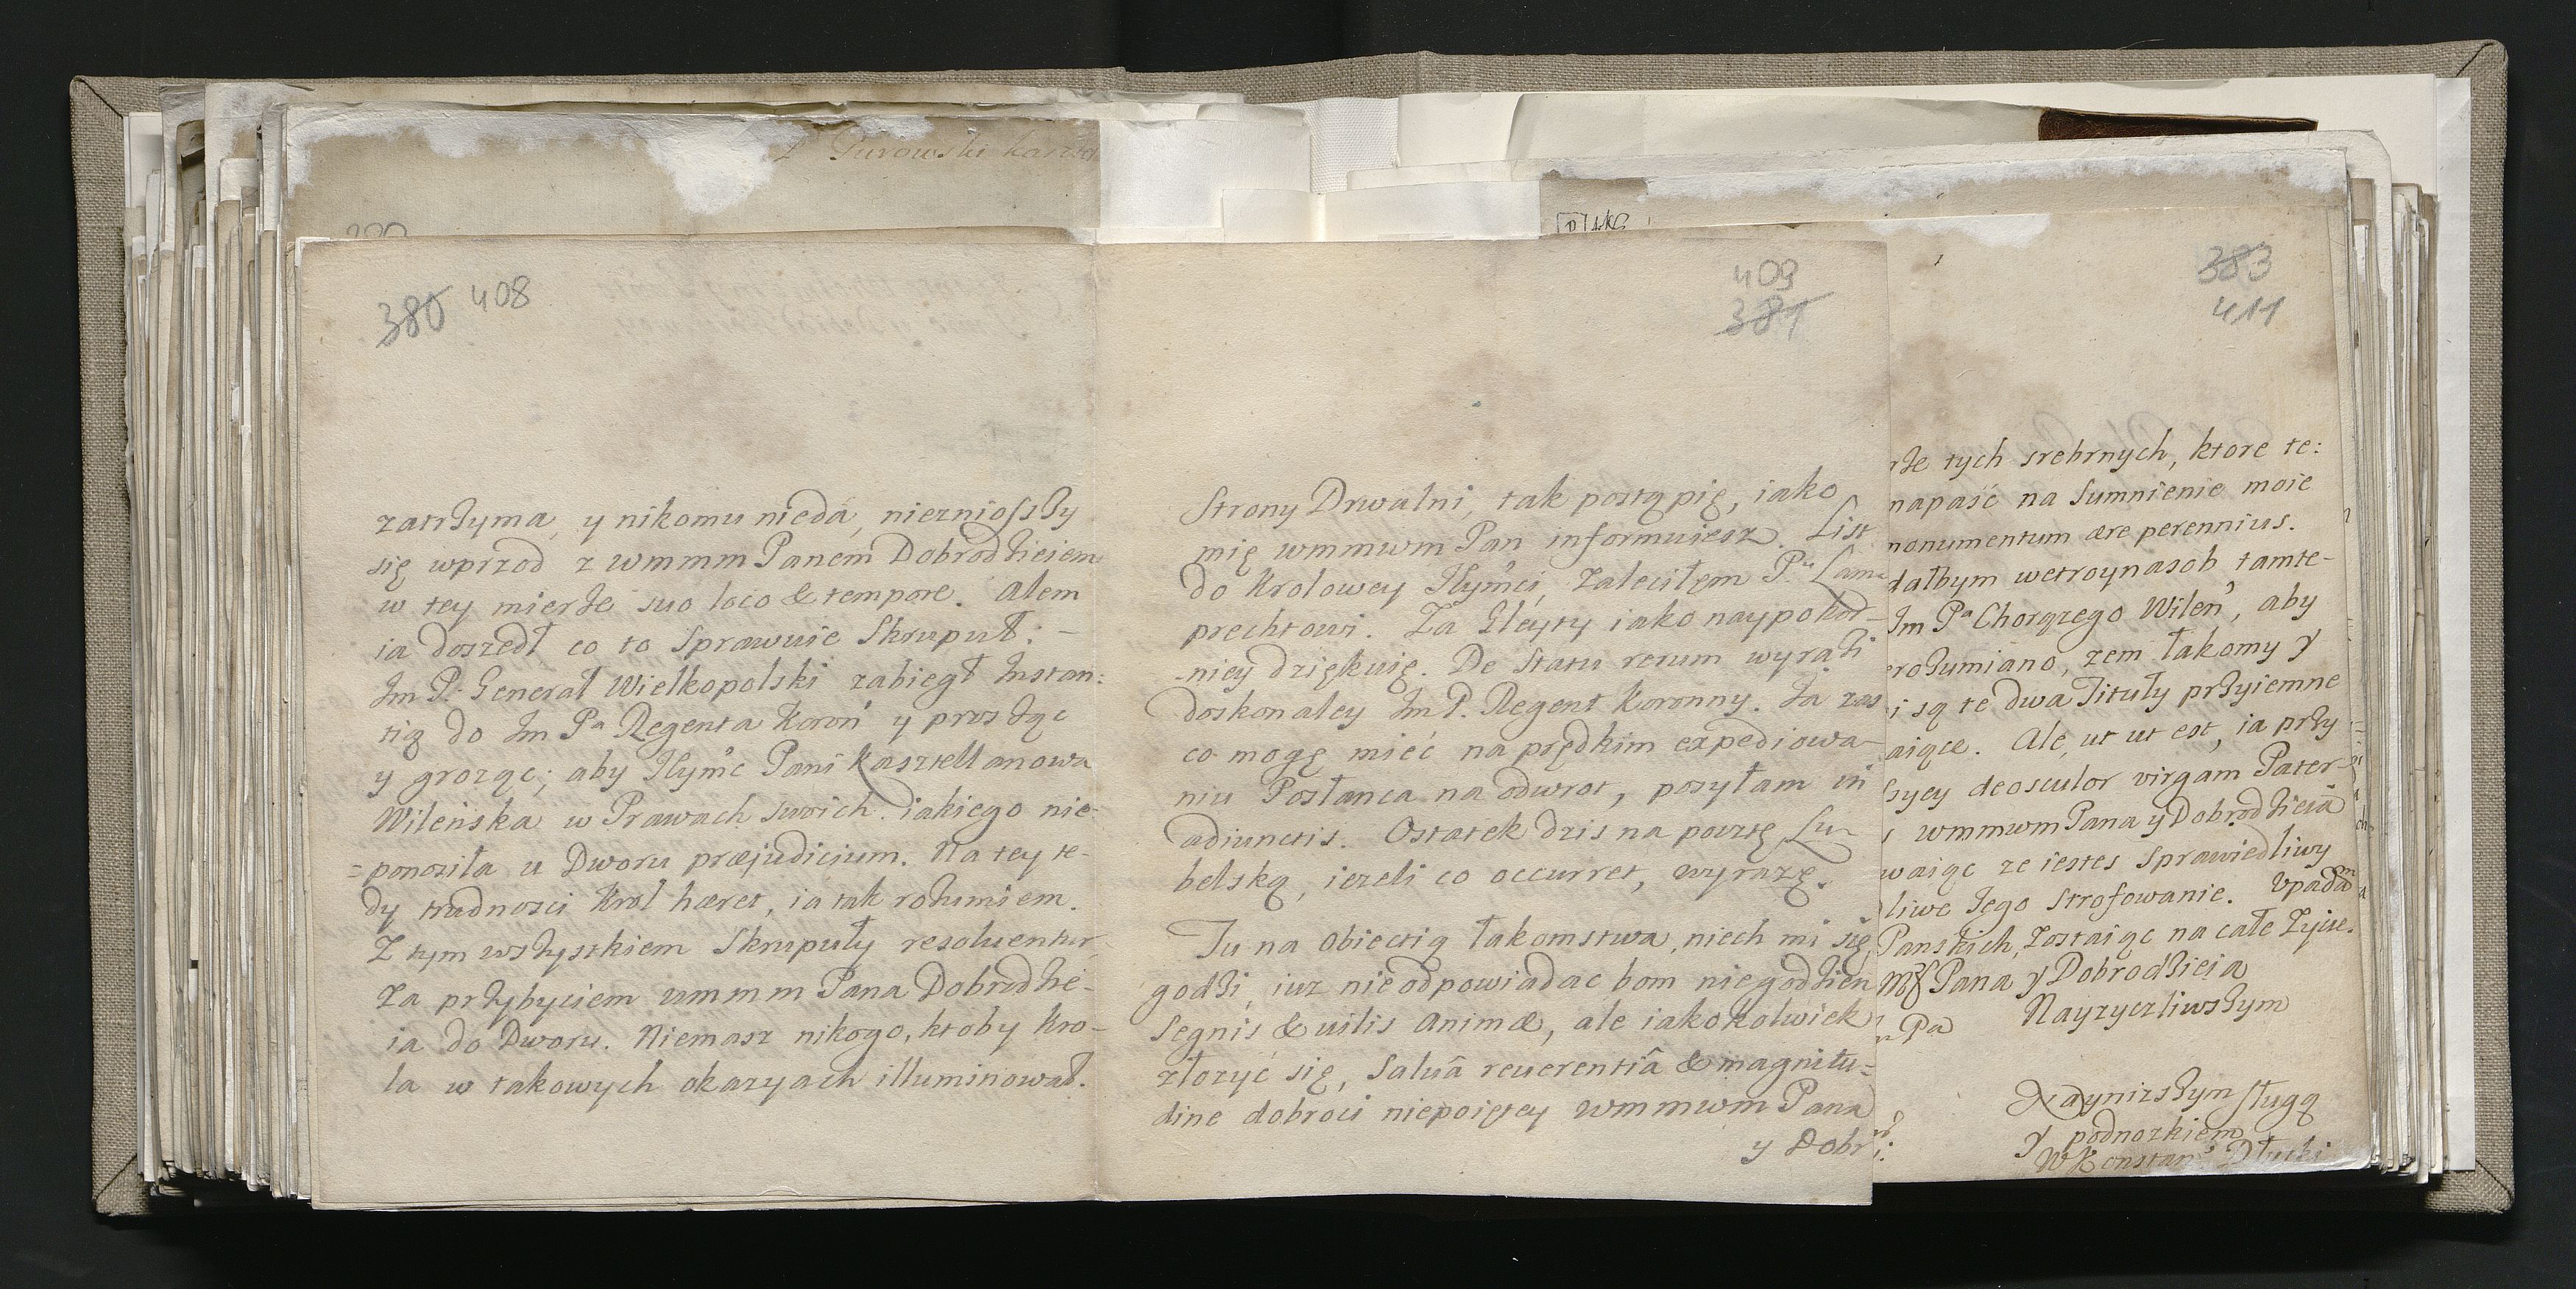 Purowski
380 408
zatrzyma, y nikomu nieda, niezniosszy
się wprzod z wmmm Panem Dobrodzieiem
w tey mierze suo loco & tempore. Alem
ia doszedł co to sprawuie Skrupuł: –
Im P. Generał Wielkopolski zabiegł Instan:
tią do Im Pa Regenta Koroń y prosząc
y grożąc; aby Jłymć Pani Kasztellanowa
Wileńska w Prawach swoich iakiego nie-
=ponosiła u Dworu præjudicium. Na tey te-
dy trudnosci Krol hæret, ia tak rozumiem.
Z tym wszystkiem Skrupuły resoluentur
za przybyciem wmmm Pana Dobrodzie-
ia do Dworu. Niemasz nikogo, ktoby Kro-
la w takowych okazyach illuminował.
409
381
Strony Drwalni, tak postąpię, iako
mię wmmwm Pan informuiesz. List
do Krolowey Jłymći, zaleciłem Pu Lam
prechtowi. Za Gleyty iako naypokor-
-niey dziękuię. De statu rerum wyrazi
doskonaley Im P. Regent Koronny. Ja zas
co mogę mieć na prędkim expediowa-
niu Posłanca na odwrot, posyłam in
adiunctis. Ostatek dzis na pocztę Lu-
belską, iezeli co occurret, wyrazę.
Tu na Obiectią łakomstwa, niech mi się
godzi, iuz nie odpowiadac bom niegodzien
segnis & uilis animæ, ale iakokolwiek
złozyć się, Saluâ reuerentiâ & magnitu=
dine dobroci niepoiętey wmmwm Pana
y Dobr
383
411
rze tych srebrnych, ktore te:
napaść na Sumnienie moie
monumentum ære perennius.
dałbym wetroynasob tamte-
Im Pa Chorązego Wileń, aby
erozumiano, zem łakomy y
i są te dwa Tituły przyiemne
aiące. Ale, ut ut est, ia przy
szyey deosculor virgam Pater-
wmmwm Pana y Dobrodzieiâ
waiąc ze iestes Sprawiedliwy
liwe Jego Strofowanie. Vpadam
Panskich, zostaiąc na całe życie.
Pana y Dobrodzieia
Pa Nayzyczliwszym
Naynizszym sługą
y podnozkiem
WKonstan Dłuski